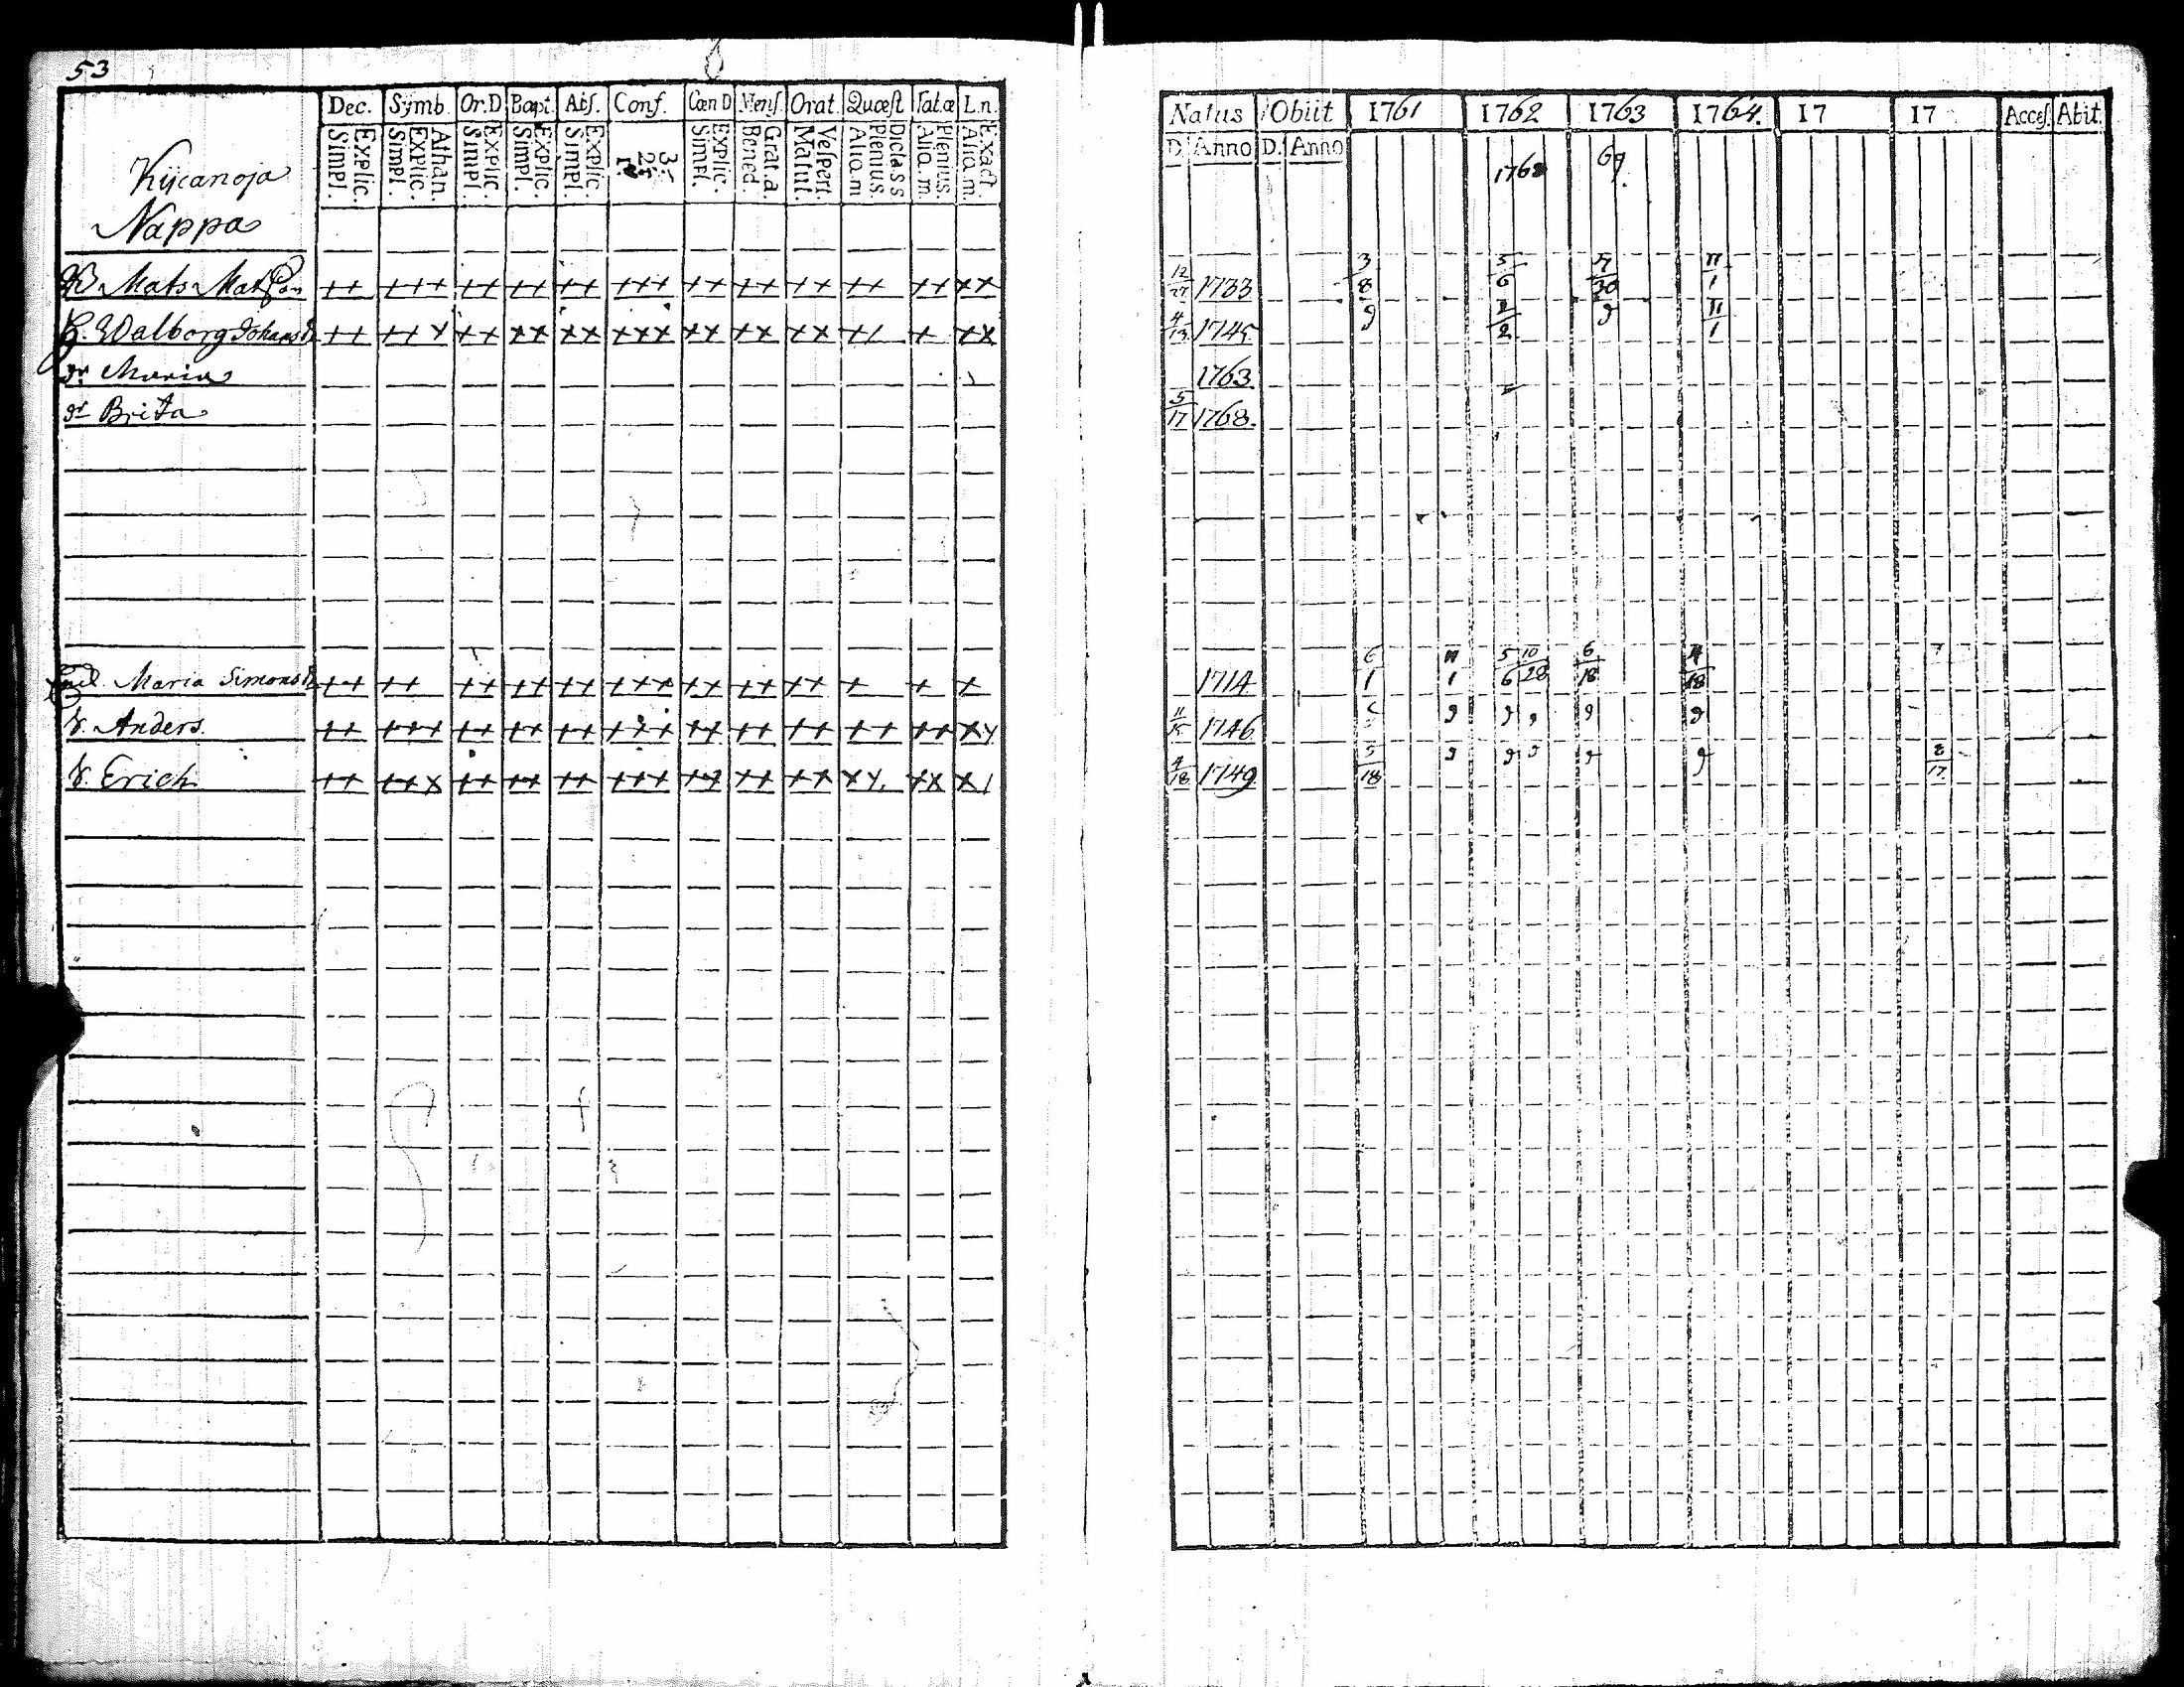 53
Dec. Symb. Or.D Bapt. Abſ. Conf. Cœn D Menſ. Orat. Quæſt Tab.æ L.n.
Explic. Simpl. Athan. Explic. Simpl. Explic. Simpl. Explic. Simpl. Explic. Simpl. 3. 2. 1. Explic. Simpl. Grat.a. Bened. Veſpert. Matut. Dict.a s s Plenius. Aliq.m Plenius. Aliq.m. Exact. Aliq.m.
Kÿcanoja
Nappa
Mats Matsson ++ +++ ++ ++ ++ +++ ++ ++ ++ ++ ++ ××
H. Walborg Johansdr ++ ++× ++ ×× ×× ××× ×× ×× ×× +/ + ××
dr Maria
dr Brita
Maria Simonsdr ++ ++ ++ ++ ++ +++ ++ ++ ++ + + +
S. Anders. ++ +++ ++ ++ ++ +++ ++ ++ ++ ++ ++ ××
S. Erich ++ ++× ++ ++ ++ +++ ++ ×× ×× ××. ×× ×/
Natus Obiit 1761 1762 1763 1764. 17 17 Acceſ. Abit.
D. Anno D. Anno
1768 69.
12/27 1733 3/8 5/6 /30 11/1
4/13 1745 9 2/2 9 11/1
1763.
5/17 1768.
1714 6/1 11/1 5/6 10/28 6/18 4/18
11/15 1746 9 9 9 9 9
4/18 1749 5/18 9 9 9 9 9 8/17.